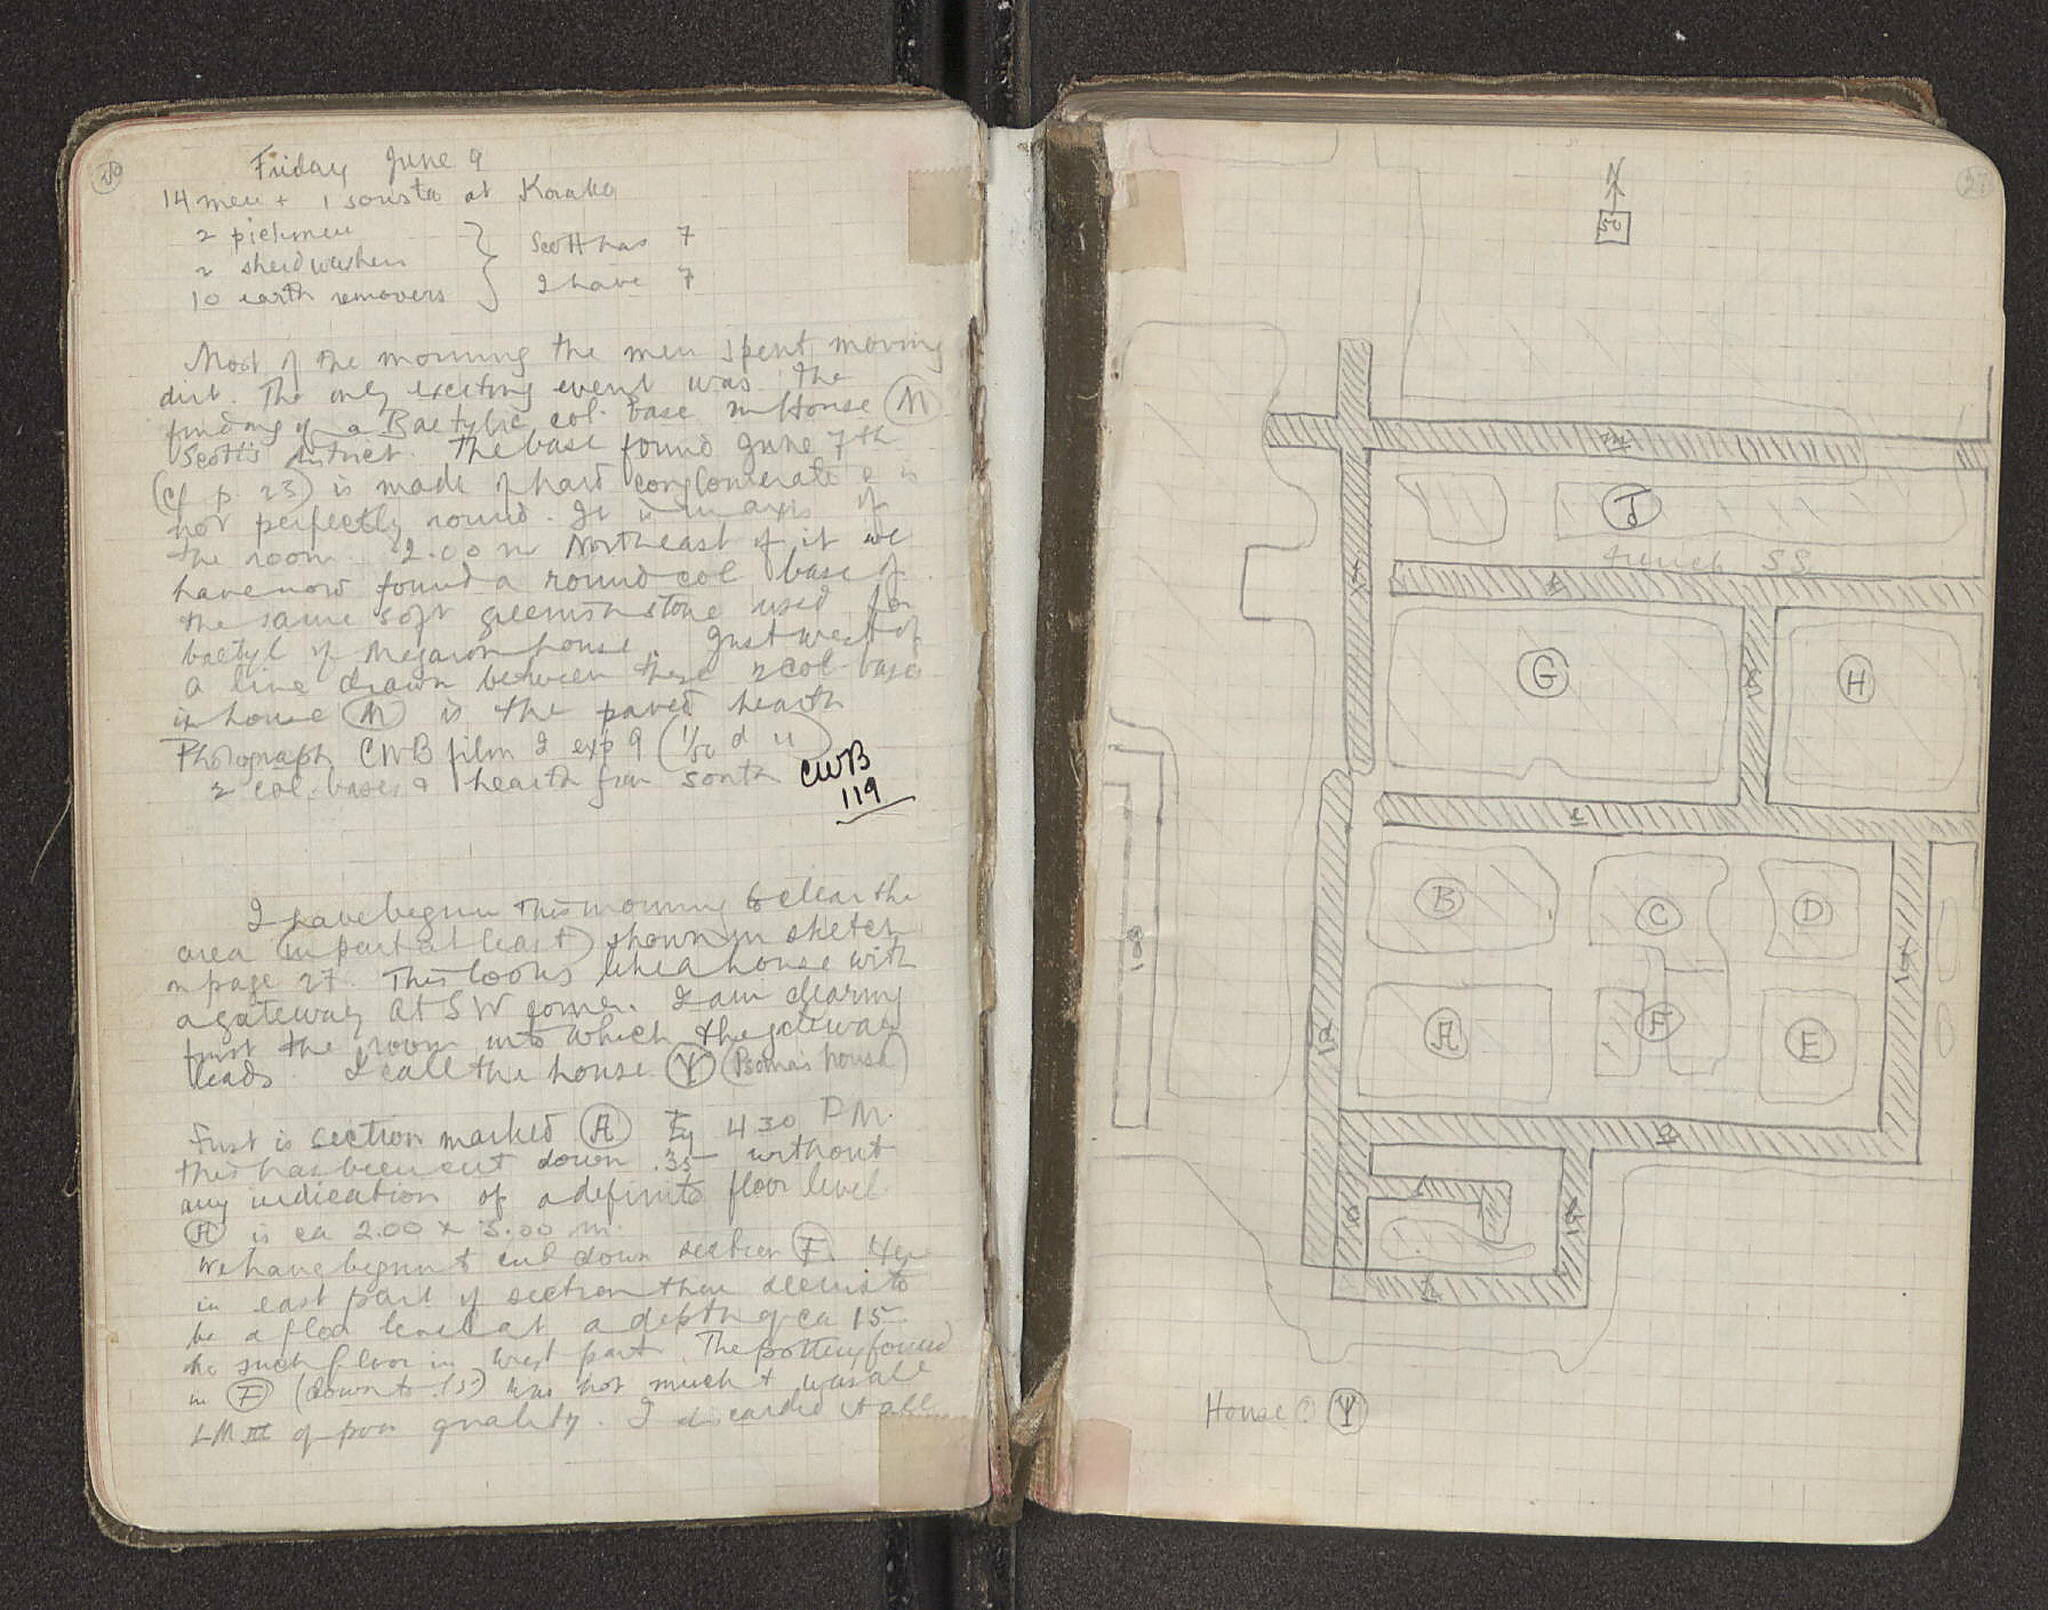 Friday June 9
14 men + 1 sousta at Korakou
2 pickmen
2 sherdwashers
10 earth removers
Scott has 7
I have 7
Most of the morning the men spent moving
dirt. The only exciting event was the
finding of a Baetylic col. base in House M
Scott's district. The base found June 7th
(cf p. 23) is made of hard conglomerate & is
not perfectly round. It is in axis of
the room. 2.00 m Northeast of it we
have now found a round col base of
the same soft greenish stone used for
baetyl of Megaron house. Just west of
a line drawn between these 2 col bases
in house M is the paved hearth
Photograph CWB film I exp 9 (1/50 d 11)
2 col. bases & hearth from south
CWB
119
I have begun this morning to clear the
area (in part at least) shown in sketch
on page 27. This looks like a house with
a gateway at SW corner. I am clearing
first the room into which the gateway
leads. I call the house Ψ (Psoma's house)
First is section marked A By 4 30 P.M.
this has been cut down .35 without
any indication of a definite floor level
A is ca 2.00 x 3.00 m.
We have begun to cut down section F. Here
in east part of section there seems to
be a floor level at a depth of ca 15
No such floor in west part. The pottery found
in F (down to .15) was not much & was all
LM III of poor quality. I discarded it all
27
N
50
J
trench SS
G
H
B
C
D
A
F
E
House ? Ψ